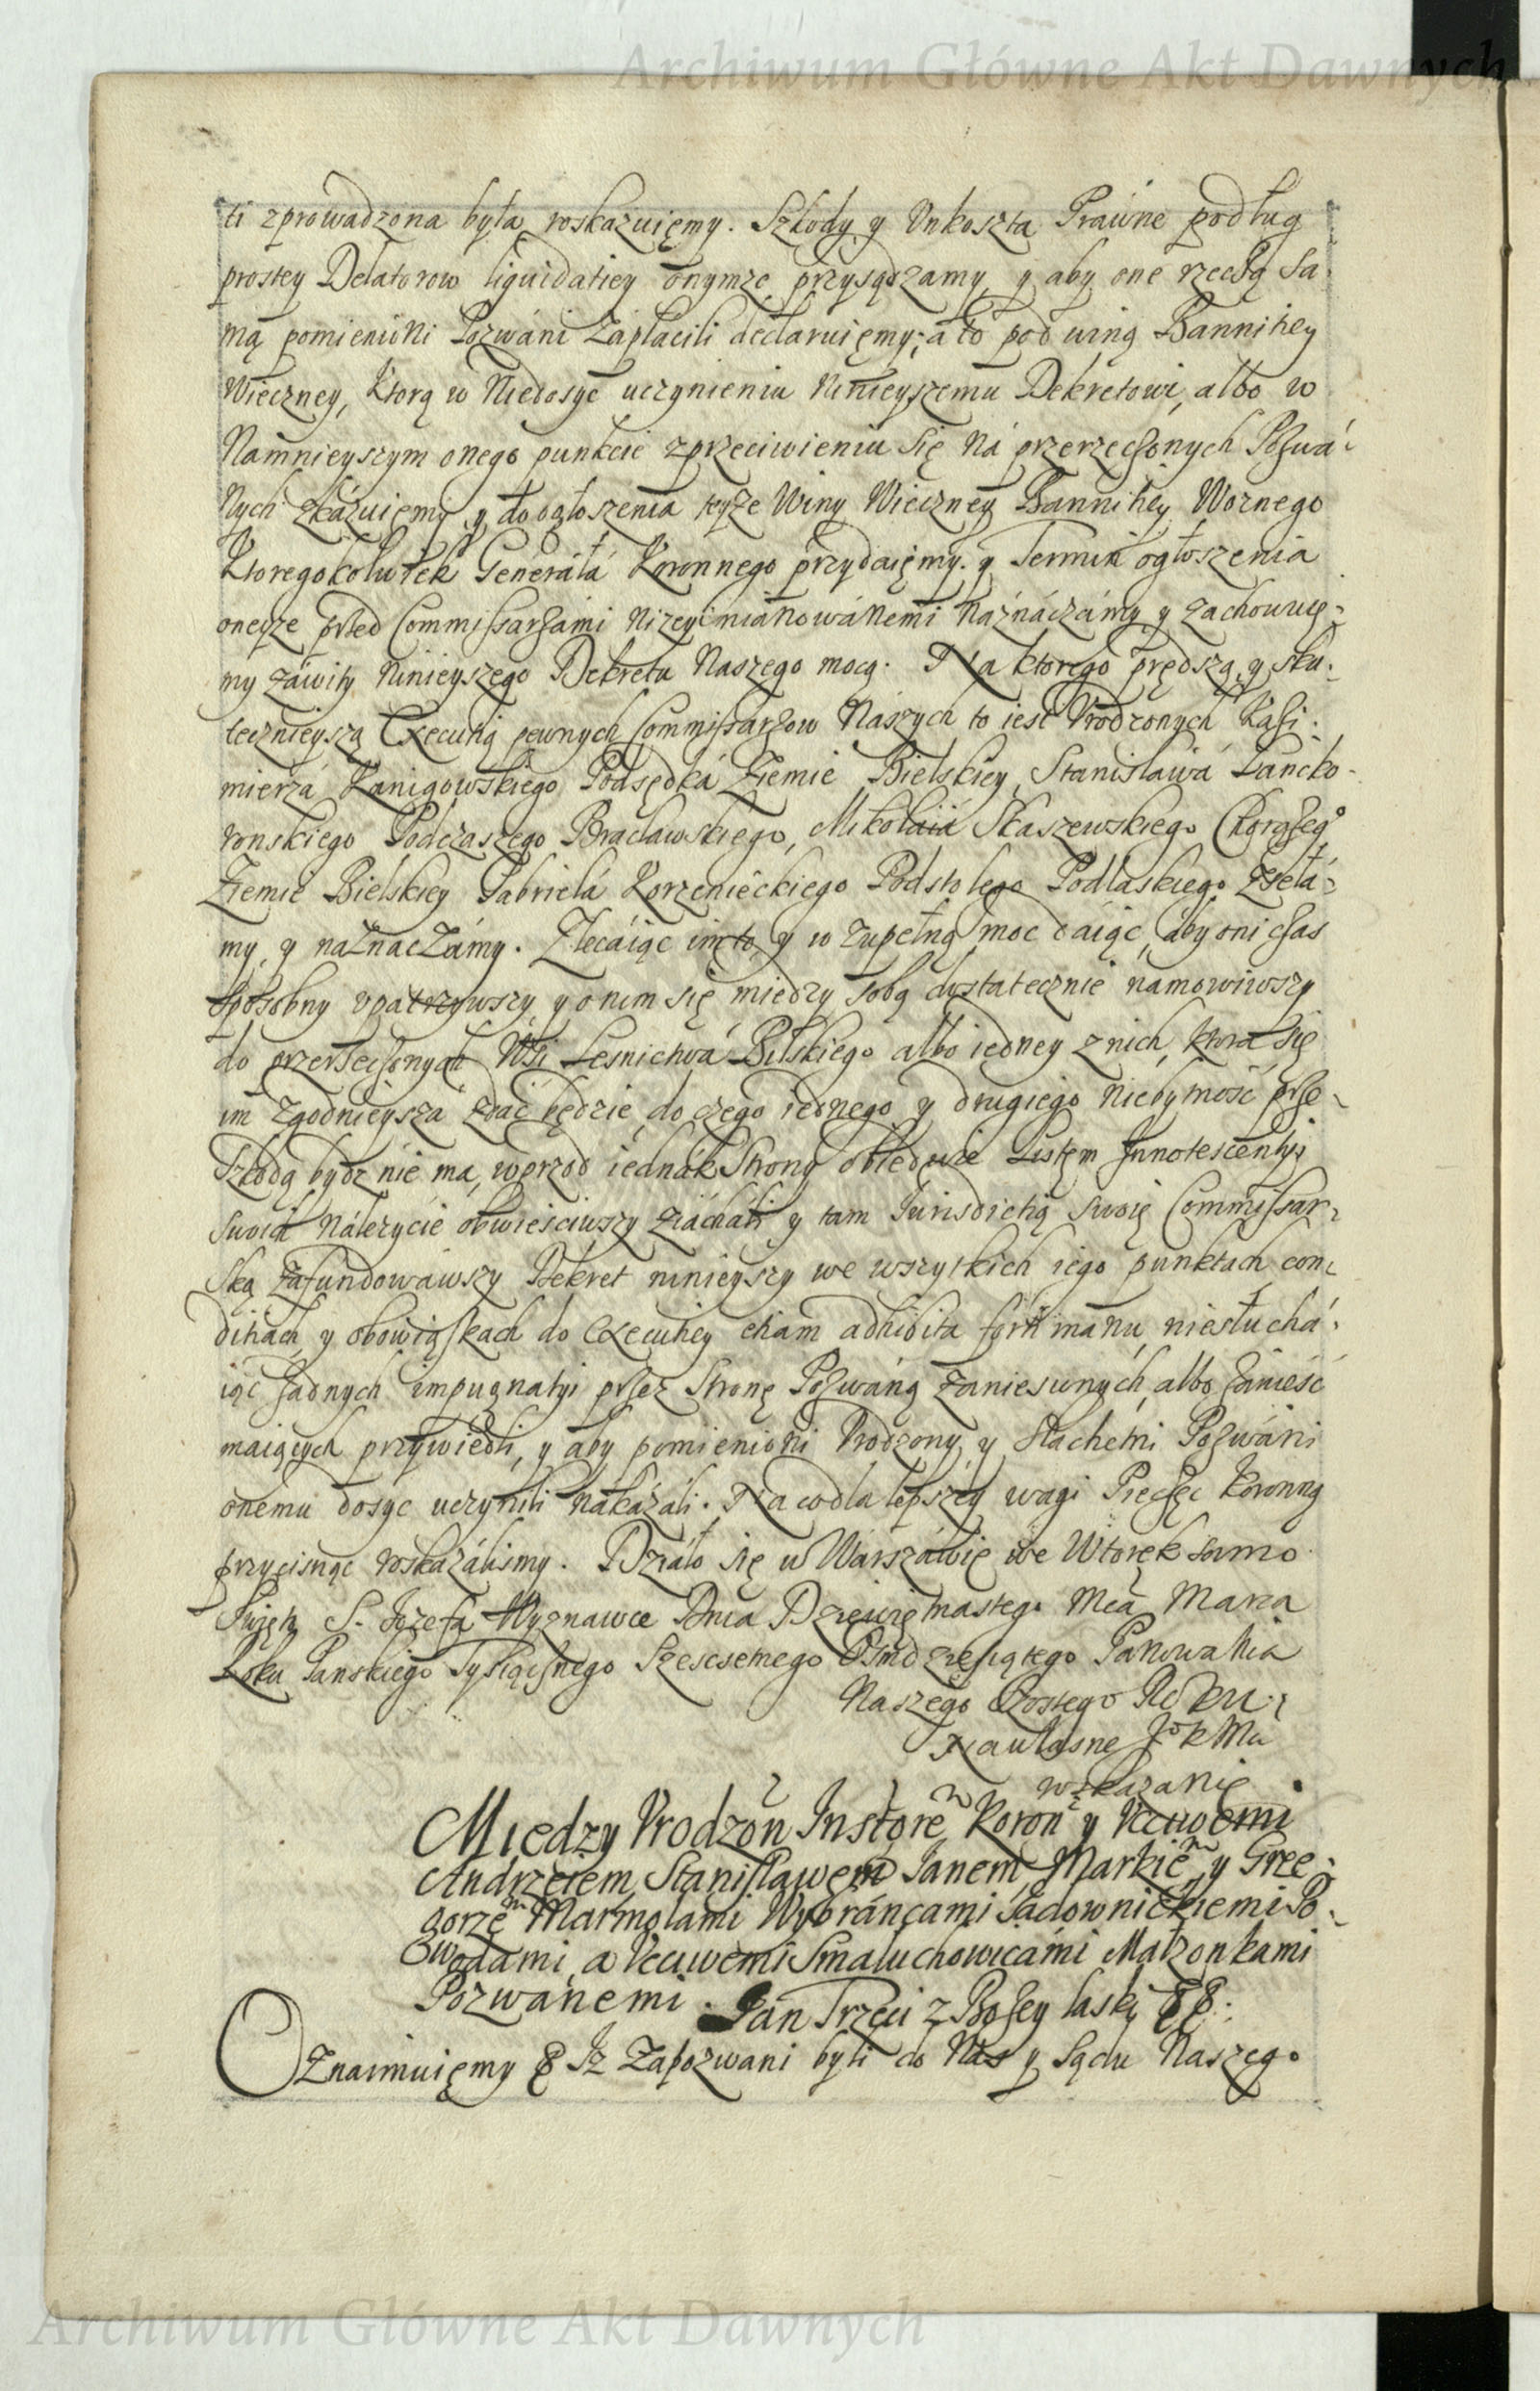 Archiwum Główne Akt Dawnych
ti zprowadzona była roskazuięmy. Szkody y Unkoszta Prawne podług
prostey Delatorow liquidatiey onymze przysądzamy, y aby one rzeczą sa-
mą pomienioni Pozwáni zápłacili declaruięmy; a to pod winą Bannitiey
Wieczney, Ktorą w Niedosyc uczynieniu Ninieyszemu Dekretowi, albo w
Namnieyszym onego punkcie zprzeciwieniu się ná przerzeczonych Pozwá-
nych zkázuięmy y do ogłoszenia teyze Winy Wieczney Bannitiey Woznego
Ktoregokolwiek Generałá Koronnego przydaięmy. y Termin ogłoszenia
oneyze przed Commissarzami nizey mianowánemi náznáczámy y zachowuię-
my záwity Ninieyszego Dekretu Naszego mocą. Na ktorego prędszą y sku-
tecznieyszą Executią pewnych Commissarzow Nászych to iest Vrodzonych Kazi-
mierzá Kanigowskiego Podsędká Ziemie Bielskiey, Stanisławá Lancko-
ronskiego Podczaszego Bracławskiego, Mikołaiá Skaszewskiego Chorązego
Ziemie Bielskiey Gabrielá Korzenieckiego Podstolego Podlaskiego Zsełá-
my, y náznaczámy. Zlecáiąc im to y w zupełną moc dáiąc, aby oni czas
sposobny vpatrzywszy, y o nim się między sobą dystatecznie namowiwszy
do przerzeczonych Wsi Lesnictwá Bilskiego albo iedney z nich, ktora się
im zgodnieysza zdáć będzie, do czego iednego y drugiego niebytnosć prze-
szkodą bydz nie ma, wprzod iednák Strony obiedwie Listem Innotescentyi
swoich nálezycie obwiesciwszy ziácháli y tam Iurisdictią swoię Commissar-
ską zafundowawszy Dekret ninieyszy we wszytkich iego punktach con-
ditiach, y obowiąskach do Executiey etiam adhibita forti manu, niesłuchá-
iąc żadnych impugnatyi przez Stronę Pozwáną zaniesionych, albo zanieść
maiących przywiedli, y aby pomienioni Vrodzony, y Slachetni Pozwáni
onemu dosyc uczynili nákazáli. Na co dla lepszey wagi Pieczęc Koronną
przycisnąc roskazálismy. Działo się w Warszáwie we Wtorek samo
Swięta S. Iozefa Wyznawce Dnia Dziewiętnastego Mca Marca
Roku Panskiego Tysiącznego Szescsetnego Osmdziesiątego Panowania
Naszego Szostego Roku
Na własne J° K Mci
wskazanie
Między Vrodzon Instore Koron y Vccwemi
Andrzeiem, Stanisławem Ianem, Markie, y Grze-
gorze Marmolami Wybráncami Sadownickiemi Po-
wodami, a Vccwemi Smaluchowicámi Małzonkami
Pozwanemi. Ian Trzeci z Bozey łaski &&:
Oznaimuięmy & Iz Zapozwani byli do Nas y Sądu Naszego
Archiwum Główne Akt Dawnych